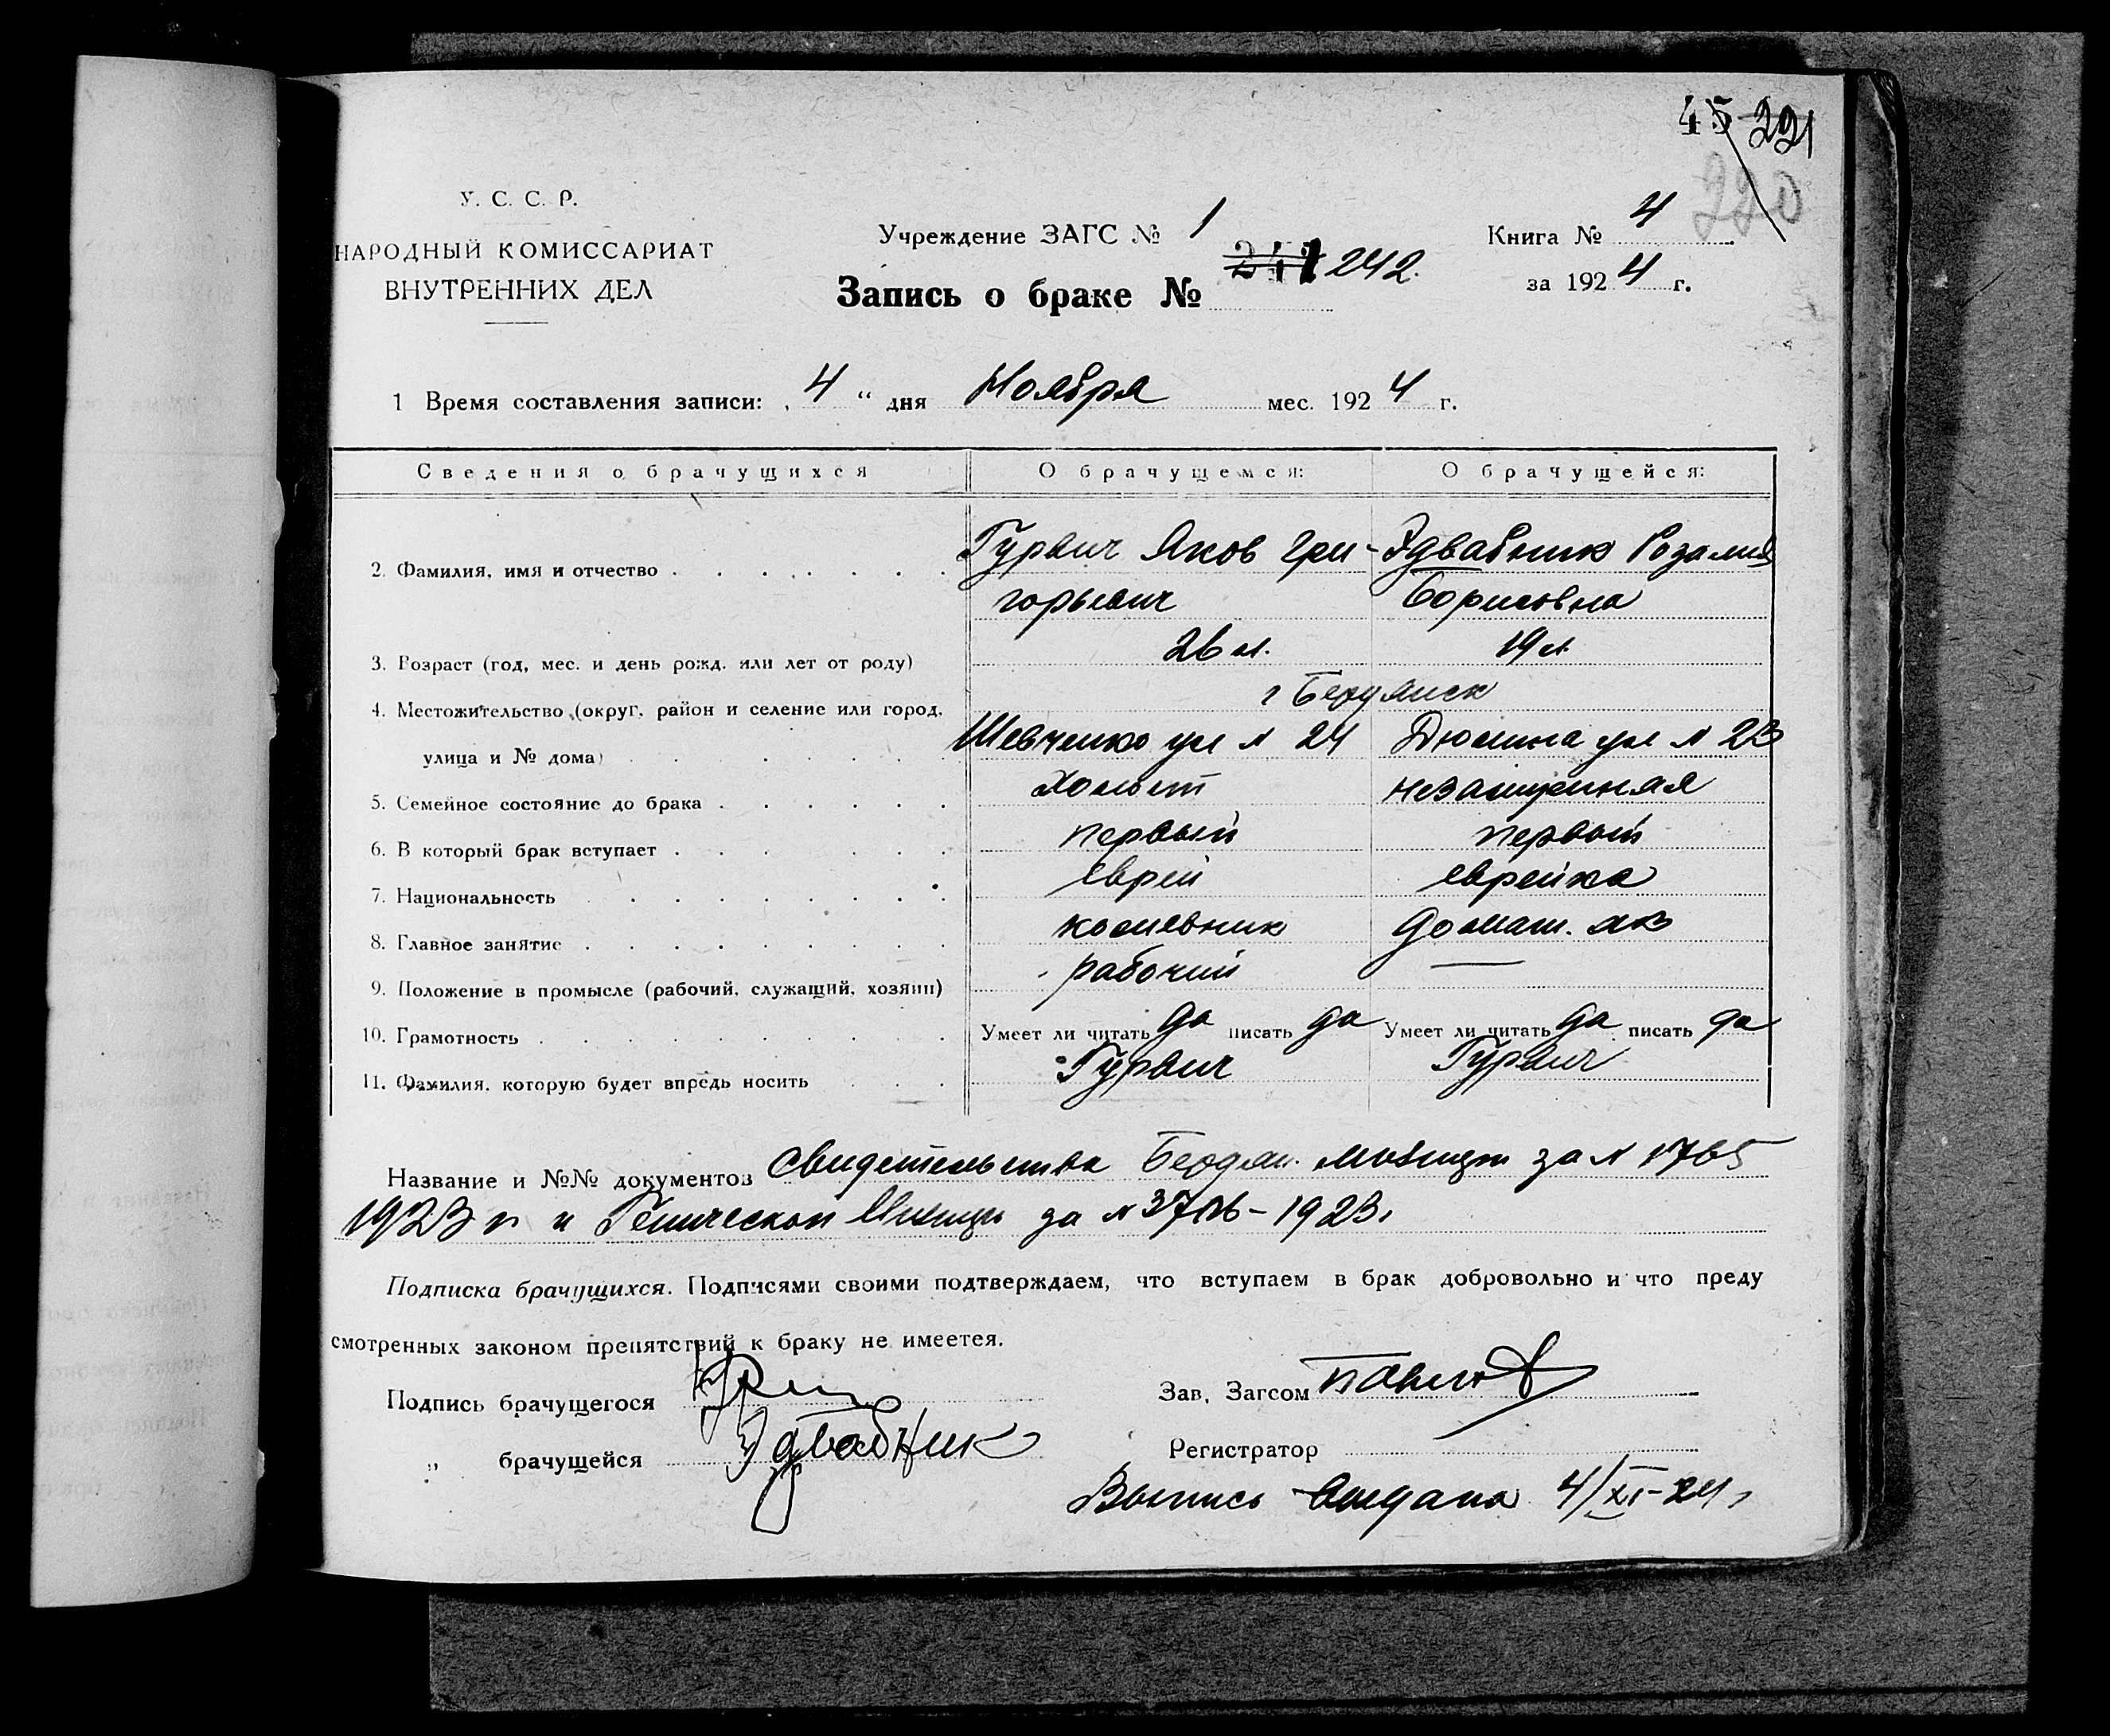 45 221
220
У. С. С. Р.
НАРОДНЫЙ КОМИССАРИАТ
ВНУТРЕННИХ ДЕЛ
Учреждение ЗАГС № 1
Книга № 4
Запись о браке № 241 242.
за 1924 г.
1 Время составления записи: „ 4 “ дня Ноября мес. 1924 г.
Сведения о брачущихся О брачущемся: О брачущейся:
2. Фамилия, имя и отчество Гурвич Яков Гри- Эдвабник Розалия
горьевич Борисовна
3. Возраст (год, мес. и день рожд. или лет от роду) 26 л. 19 л.
4. Местожительство (округ, район и селение или город, г Бердянск
улица и № дома) Шевченко ул № 24 Дюмина ул № 23
5. Семейное состояние до брака холост незамужняя
6. В который брак вступает первый первый
7. Национальность еврей еврейка
8. Главное занятие домаш. хоз
9. Положение в промысле (рабочий, служащий, хозяин) рабочий —
10. Грамотность Умеет ли читать да писать да Умеет ли читать да писать да
11. Фамилия, которую будет впредь носить Гурвич Гурвич
Название и №№ документов Свидетельства Бердян. милиции за № 1765
1923 г и Генической Милиции за № - 1923г
Подписка брачущихся. Подписями своими подтверждаем, что вступаем в брак добровольно и что преду
смотренных законом препятствий к браку не имеется.
Подпись брачущегося
Зав. Загсом Павлов
„ брачущейся Эдвабник
Регистратор
Выпись выдана 4/XI-24 г